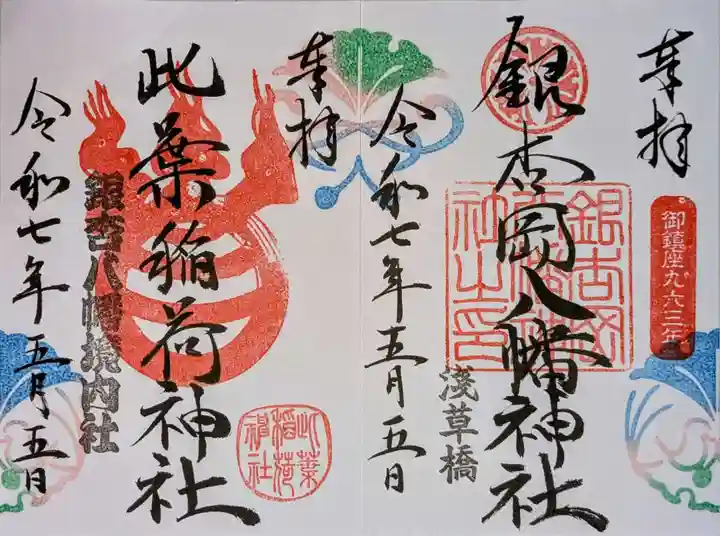 奉拝
御鎮座九六三年
銀杏岡八幡神社
銀杏岡八幡神社之印
淺草橋
令和七年五月五日
奉拝
此葉稲荷神社
此葉稲荷神社
銀杏八幡境内社
令和七年五月五日